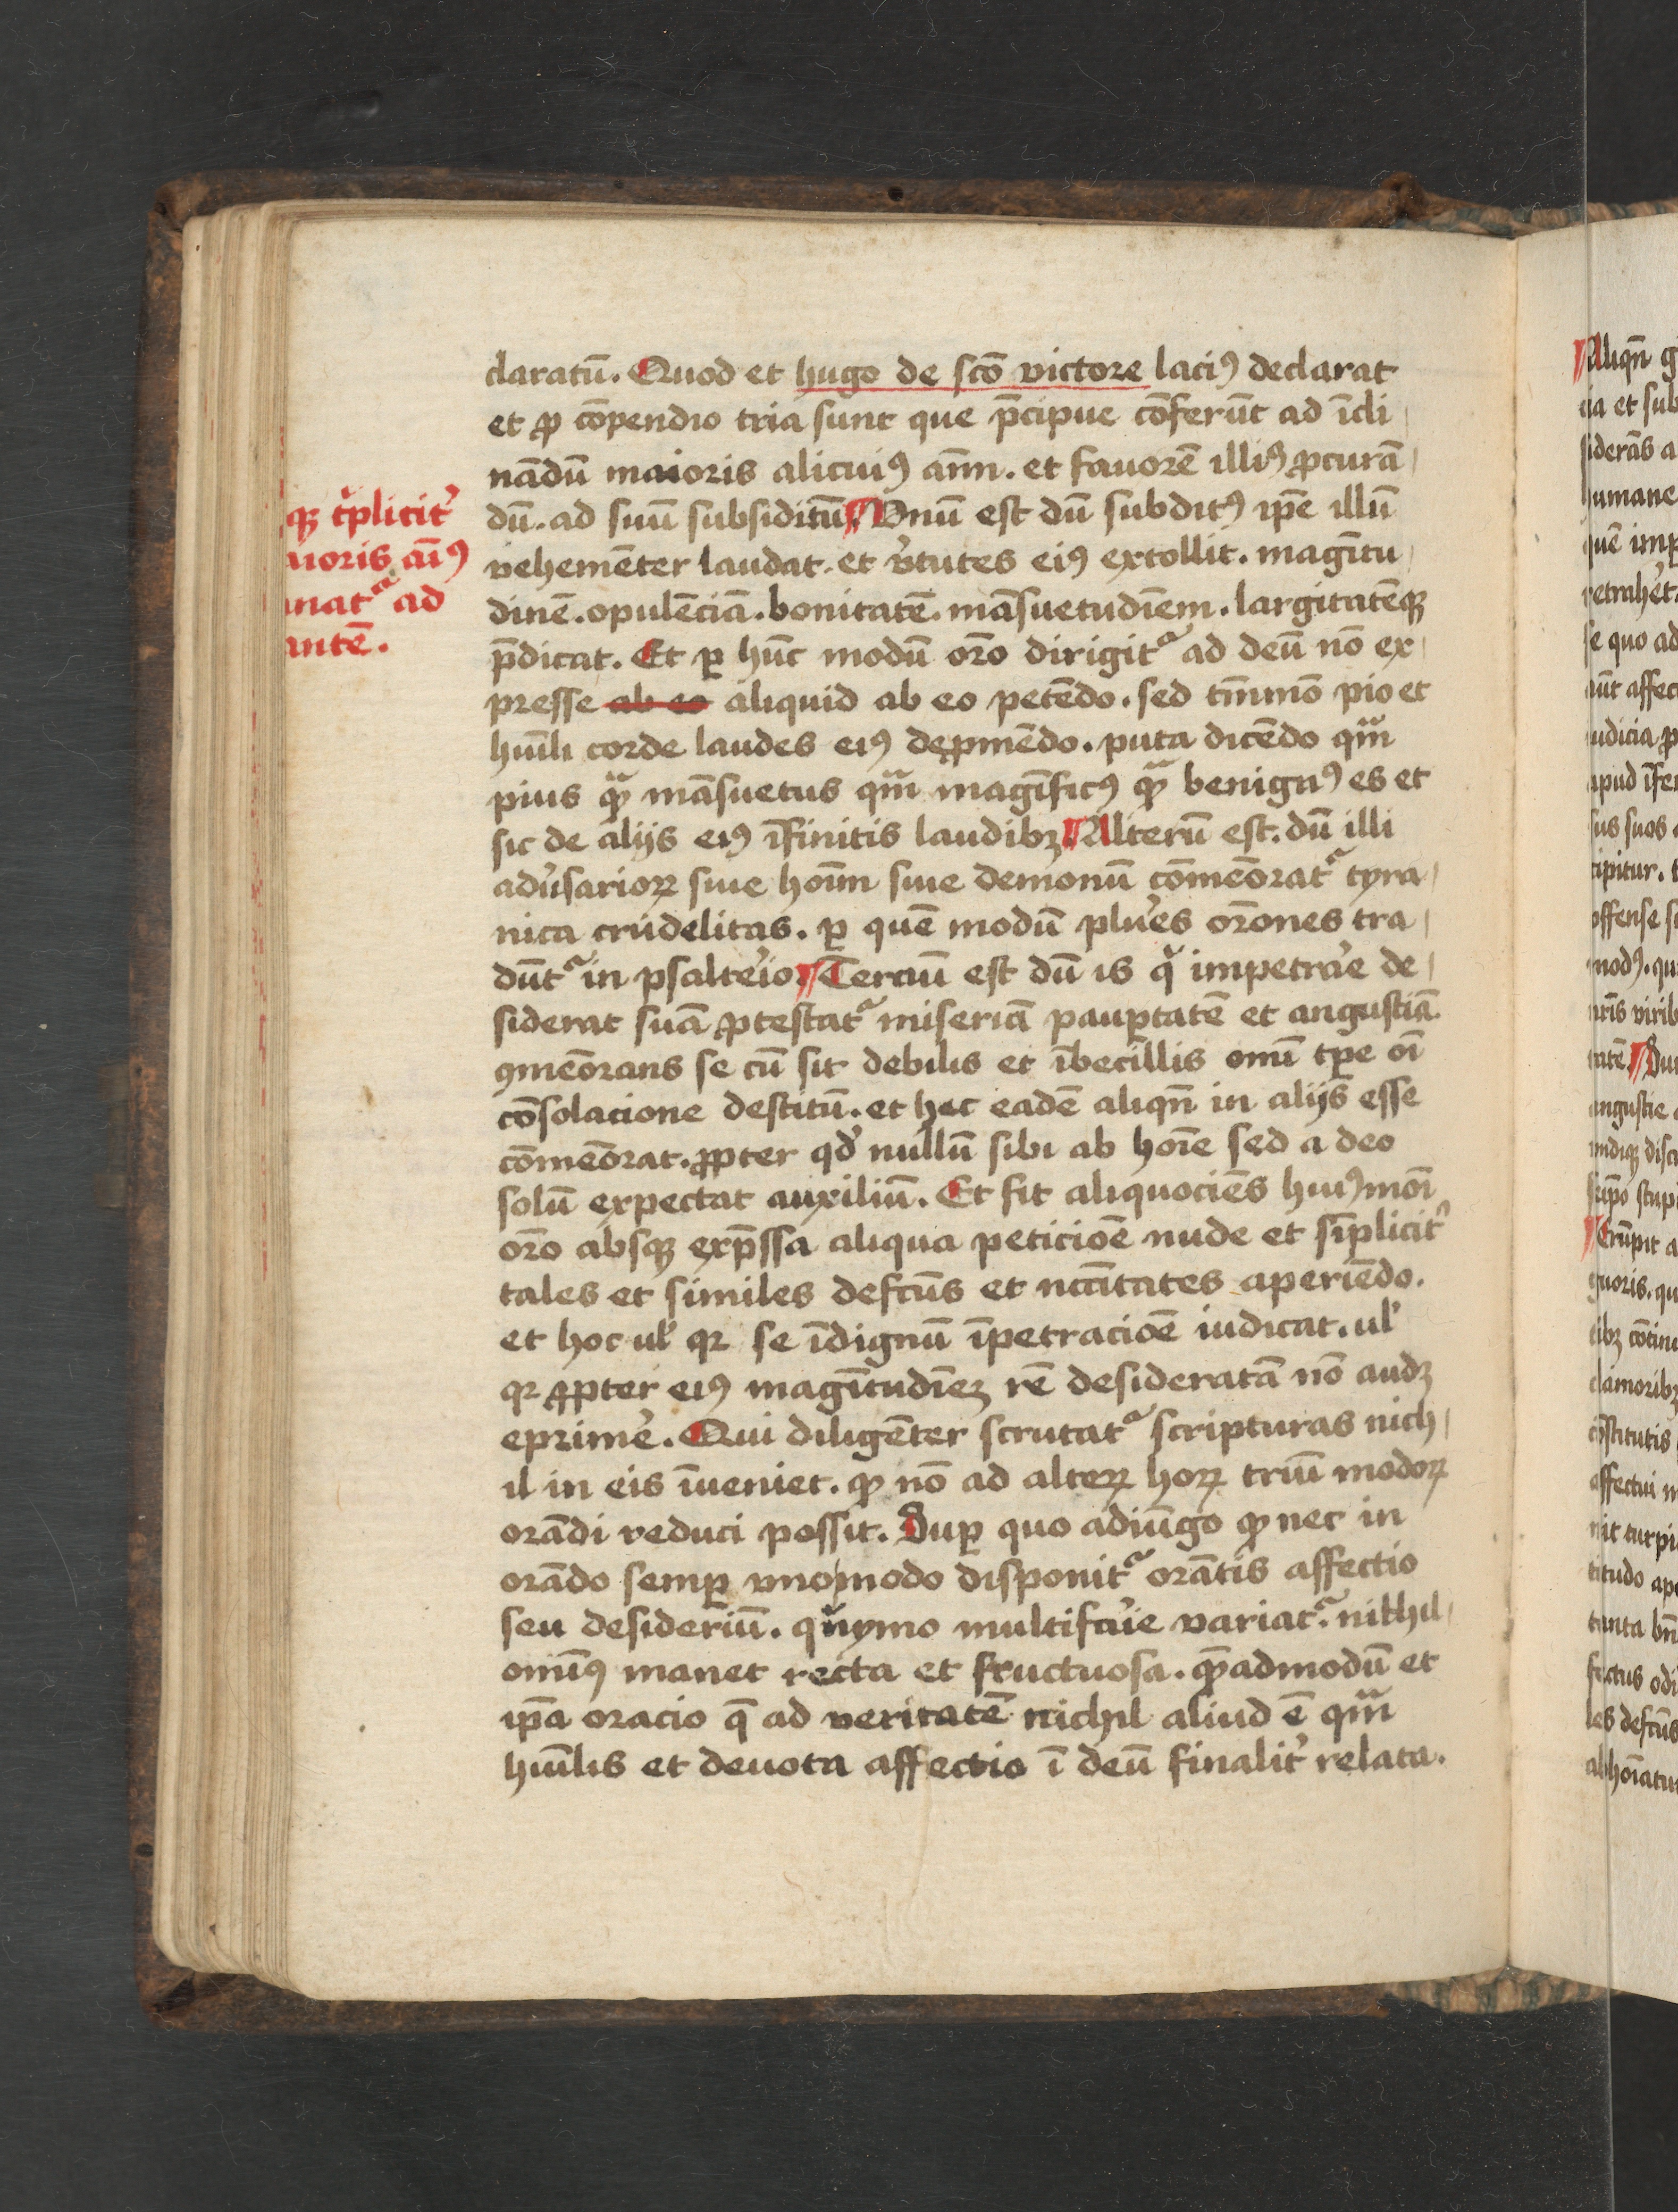 claratū. Quod et hugo de sc̄o victore laciꝯ declarat
et ꝓ cōpendio tria sunt que p̄cipue cōferūt ad īcli
nādū maioris alicuiꝯ aīm. et fauorē illiꝯ ꝓcurā
dū. ad suū subsidiū ¶ Vnū est dū subditꝯ ip̄e illū
vehemēter laudat. et v̓tutes eiꝯ extollit. magītu
dinē. opulēciā. bonitatē. māsuetudīem. largitatēqꝫ
p̄dicat. Et ꝑ hūc modū or̄o dirigitᷣ ad deū nō ex
presse ab eo aliquid ab eo petēdo. sed tm̄mō pio et
hūili corde laudes eiꝯ dep̱mēdo. puta dicēdo qᷓm
pius qᷓꝫ māsuetus qᷓm magīficꝯ qᷓꝫ benignꝯ es et
sic de alijs eiꝯ īfinitis laudibꝫ ¶ Alterū est. dū illi
adu̓sarioꝝ siue hoīm siue demonū cōmēoratᷣ tyra
nica crudelitas. ꝑ quē modū plu̓es or̄ones tra
dūtᷣ in psalte̓io. ¶ Terciū est dū is qͥ impetra̓e de
siderat suā ꝓtestatᷣ miseriā pauꝑtatē et angustiā.
ꝯmēorans se cū sit debilis et ībecillis omī tp̄e oī
cōsolacione destitū. et hec eadē aliqn̄ in alijs esse
cōmēorat. ꝓpter qd̓ nullū sibi ab hoīe sed a deo
solū expectat auxiliū. Et fit aliquociēs huiꝯmōi
or̄o absqꝫ exp̄ssa aliqua peticiōe nude et sīplicit̓
tales et similes defcūs et nccītates aperiēdo.
et hoc ul̓ qꝛ se īdignū īpetraciōe iudicat. ul̓
qꝛ ꝓpter eiꝯ magītudīeꝫ rē desideratā nō audꝫ
eprime̓. Qui diligēter scrutatᷣ scripturas nich
il in eis īueniet. ꝙ nō ad alteꝝ hoꝝ triū modoꝝ
orādi reduci possit. Suꝑ quo adiūgo ꝙ nec in
orādo semꝑ vno modo disponitᷣ orātis affectio
seu desideriū. qͥnymo multifcu̓ie variatᷣ. nichil
omīꝯ manet recta et fructuosa. quēadmodū et
ip̄a oracio q̄ ad veritatē nichil aliud ē qᷓm
hūilis et deuota affectio ī deū finalit̓ relata.
qꝫ tͥplicit̓
aioris aīꝯ
inatᷣ ad
antē.
¶ Aliqn̄ g
ia et sub
siderās a
humane
quē imp
retrahe̓t
se quo ad
aūt affec
iudicia p
apud īfer
sus suos
cipitur.
offense
modꝯ. qu
nr̄is virib
tatē. ¶ Du
angustie
undiqꝫ disc
sup̄o stup
¶ Erūpit a
guoris. qu
tibꝫ cōtinu
clamoribꝫ
cōstitutis
affectui
nit turpi
titudo ape
tanta bn̄
fectus odi
les defcūs
abhoīatu